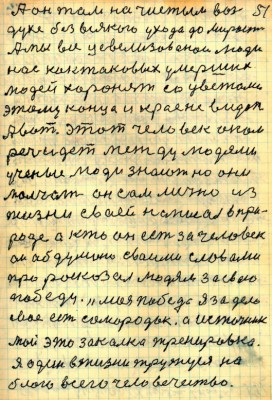 51
А он там на чистым воз
духе без всякого ухода до мирост
А мы все цевелизованои люди
нас как таковых умерших
людей хоронят со цветами
этому конца и края не видат
А вот этот человек он ом
реч идет между людями
ученые люди знают но они
молчат он сам лично из
жизни своей написал в при
роде а кто он ест за человек
он абдумано своими словами
про росказал людям за свою
победу. „моя победа я за дело
мае ест самородок. а источник
мой это закалка тренировка.
Я один в жизни тружуся на
благо всего человечество.